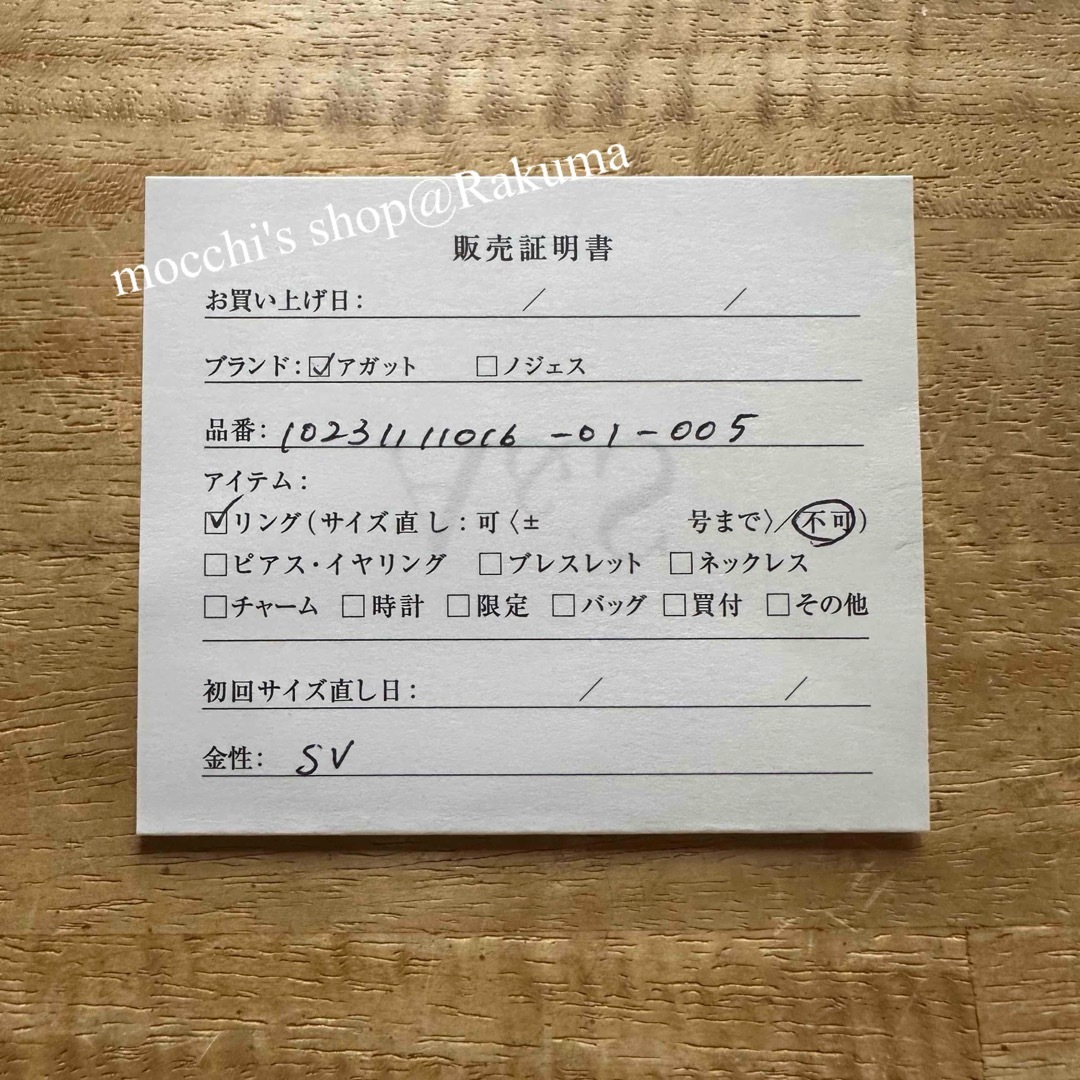 mocchi's shop@Rakuma
販売証明書
お買い上げ日: / /
ブランド: ☑アガット □ノジェス
品番: 10231111016 -01-005
アイテム:
☑リング(サイズ直し:可〈± 号まで〉/不可)
□ピアス・イヤリング □ブレスレット □ネックレス
□チャーム □時計 □限定 □バッグ □買付 □その他
初回サイズ直し日: / /
金性: SV